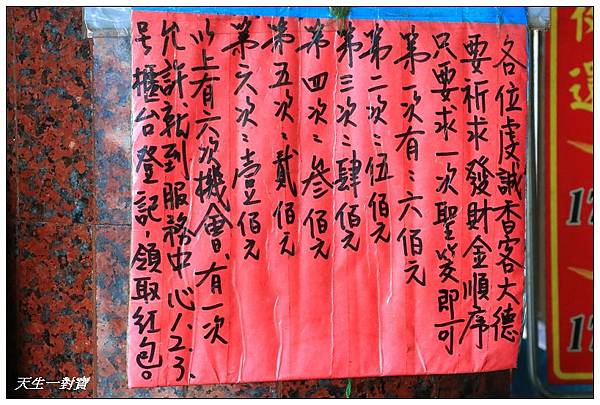 各位虔誠香客大德
要祈求發財金順序
只要求一次聖筊即可
第一次有:六佰元
第二次:伍佰元
第三次:肆佰元
第四次:參佰元
第五次:貳佰元
第六次:壹佰元
以上有六次機會、有一次
允許、就到服務中心1、2、3、
号櫃台登記,領取紅包。
還
17
17
天生一對寶